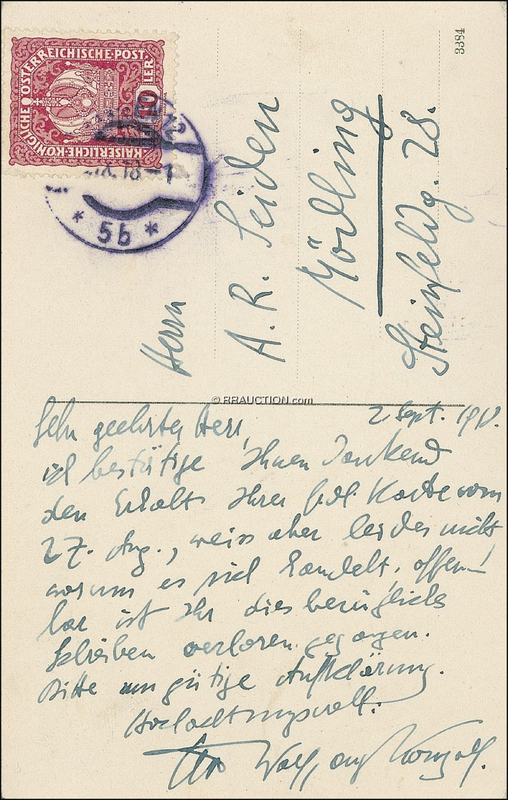 3384
KAISERLICHE KÖNIGLICHE ÖSTERREICHISCHE POST
10 HELLER
IX. 18 - 1
* 5b *
Herrn
A. R. Seiden
Mödling
Steinfeldg. 28.
© RRAUCTION.com
2 Sept. 1918.
Sehr geehrter Herr,
ich bestätige Ihnen dankend
den Erhalt Ihrer frdl. Karte vom
27. Aug., weiss aber leider nicht
worum es sich handelt, offen-
bar ist Ihr diesbezügliches
Schreiben verloren gegangen.
Bitte um gütige Aufklärung.
Hochachtungsvoll.
Wolfgang Korngold.